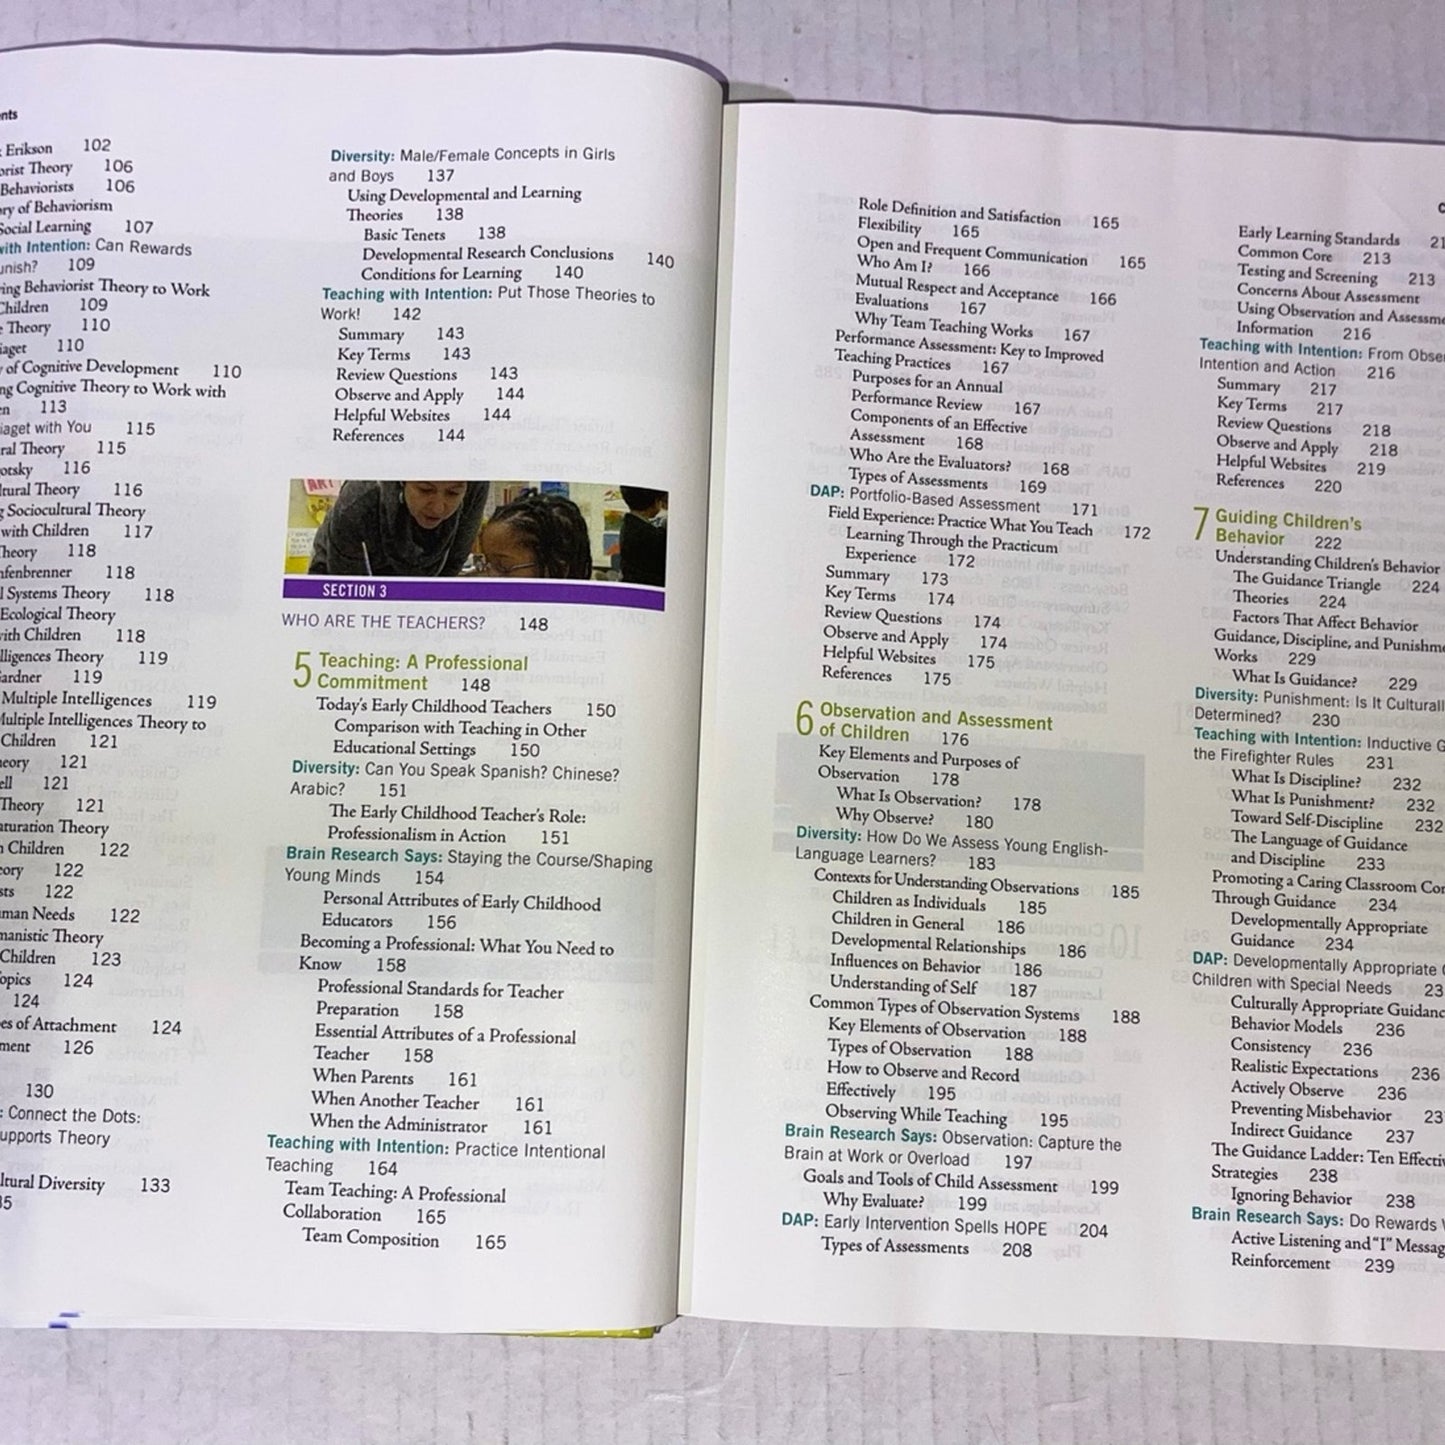 Erikson 102
Theory 106
Behaviorists 106
of Behaviorism
Social Learning 107
with Intention: Can Rewards
109
Behaviorist Theory to Work
Children 109
Theory 110
110
of Cognitive Development 110
Cognitive Theory to Work with
113
with You 115
Theory 115
116
Theory 116
Sociocultural Theory
with Children 117
118
118
Systems Theory 118
Ecological Theory
with Children 118
Theory 119
119
Multiple Intelligences 119
Multiple Intelligences Theory to
Children 121
121
121
Theory 121
Theory
Children 122
122
122
Needs 122
Theory
Children 123
124
124
of Attachment 124
126
130
: Connect the Dots:
Theory
Diversity 133
Diversity: Male/Female Concepts in Girls
and Boys 137
Using Developmental and Learning
Theories 138
Basic Tenets 138
Developmental Research Conclusions 140
Conditions for Learning 140
Teaching with Intention: Put Those Theories to
Work! 142
Summary 143
Key Terms 143
Review Questions 143
Observe and Apply 144
Helpful Websites 144
References 144
SECTION 3
WHO ARE THE TEACHERS? 148
5 Teaching: A Professional
Commitment 148
Today's Early Childhood Teachers 150
Comparison with Teaching in Other
Educational Settings 150
Diversity: Can You Speak Spanish? Chinese?
Arabic? 151
The Early Childhood Teacher's Role:
Professionalism in Action 151
Brain Research Says: Staying the Course/Shaping
Young Minds 154
Personal Attributes of Early Childhood
Educators 156
Becoming a Professional: What You Need to
Know 158
Professional Standards for Teacher
Preparation 158
Essential Attributes of a Professional
Teacher 158
When Parents 161
When Another Teacher 161
When the Administrator 161
Teaching with Intention: Practice Intentional
Teaching 164
Team Teaching: A Professional
Collaboration 165
Team Composition 165
Role Definition and Satisfaction 165
Flexibility 165
Open and Frequent Communication 165
Who Am I? 166
Mutual Respect and Acceptance 166
Evaluations 167
Why Team Teaching Works 167
Performance Assessment: Key to Improved
Teaching Practices 167
Purposes for an Annual
Performance Review 167
Components of an Effective
Assessment 168
Who Are the Evaluators? 168
Types of Assessments 169
DAP: Portfolio-Based Assessment 171
Field Experience: Practice What You Teach 172
Learning Through the Practicum
Experience 172
Summary 173
Key Terms 174
Review Questions 174
Observe and Apply 174
Helpful Websites 175
References 175
6 Observation and Assessment
of Children 176
Key Elements and Purposes of
Observation 178
What Is Observation? 178
Why Observe? 180
Diversity: How Do We Assess Young English-
Language Learners? 183
Contexts for Understanding Observations 185
Children as Individuals 185
Children in General 186
Developmental Relationships 186
Influences on Behavior 186
Understanding of Self 187
Common Types of Observation Systems 188
Key Elements of Observation 188
Types of Observation 188
How to Observe and Record
Effectively 195
Observing While Teaching 195
Brain Research Says: Observation: Capture the
Brain at Work or Overload 197
Goals and Tools of Child Assessment 199
Why Evaluate? 199
DAP: Early Intervention Spells HOPE 204
Types of Assessments 208
Early Learning Standards
Common Core 213
Testing and Screening 213
Concerns About Assessment
Using Observation and
Information 216
Teaching with Intention: From
Intention and Action 216
Summary 217
Key Terms 217
Review Questions 218
Observe and Apply 218
Helpful Websites 219
References 220
7 Guiding Children's
Behavior 222
Understanding Children's Behavior
The Guidance Triangle 224
Theories 224
Factors That Affect Behavior
Guidance, Discipline, and
Works 229
What Is Guidance? 229
Diversity: Punishment: Is It
Determined? 230
Teaching with Intention: Inductive
the Firefighter Rules 231
What Is Discipline? 232
What Is Punishment? 232
Toward Self-Discipline 232
The Language of Guidance
and Discipline 233
Promoting a Caring Classroom
Through Guidance 234
Developmentally Appropriate
Guidance 234
DAP: Developmentally Appropriate
Children with Special Needs
Culturally Appropriate
Behavior Models 236
Consistency 236
Realistic Expectations 236
Actively Observe 236
Preventing Misbehavior
Indirect Guidance 237
The Guidance Ladder: Ten
Strategies 238
Ignoring Behavior 238
Brain Research Says: Do Rewards
Active Listening and "I"
Reinforcement 239